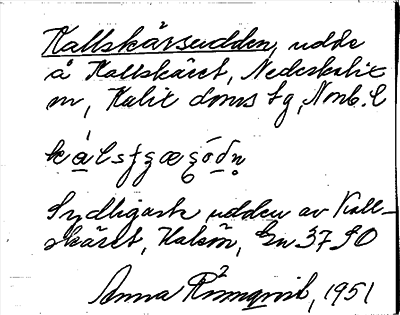 Kallskärsudden, udde
å Kallskäret, Nederkalix
sn, Kalix doms tg, Nmb. l

Sydligaste udden av Kall-
skäret, Halsön, Gn 37 SO
Anna Rönnqvist, 1951